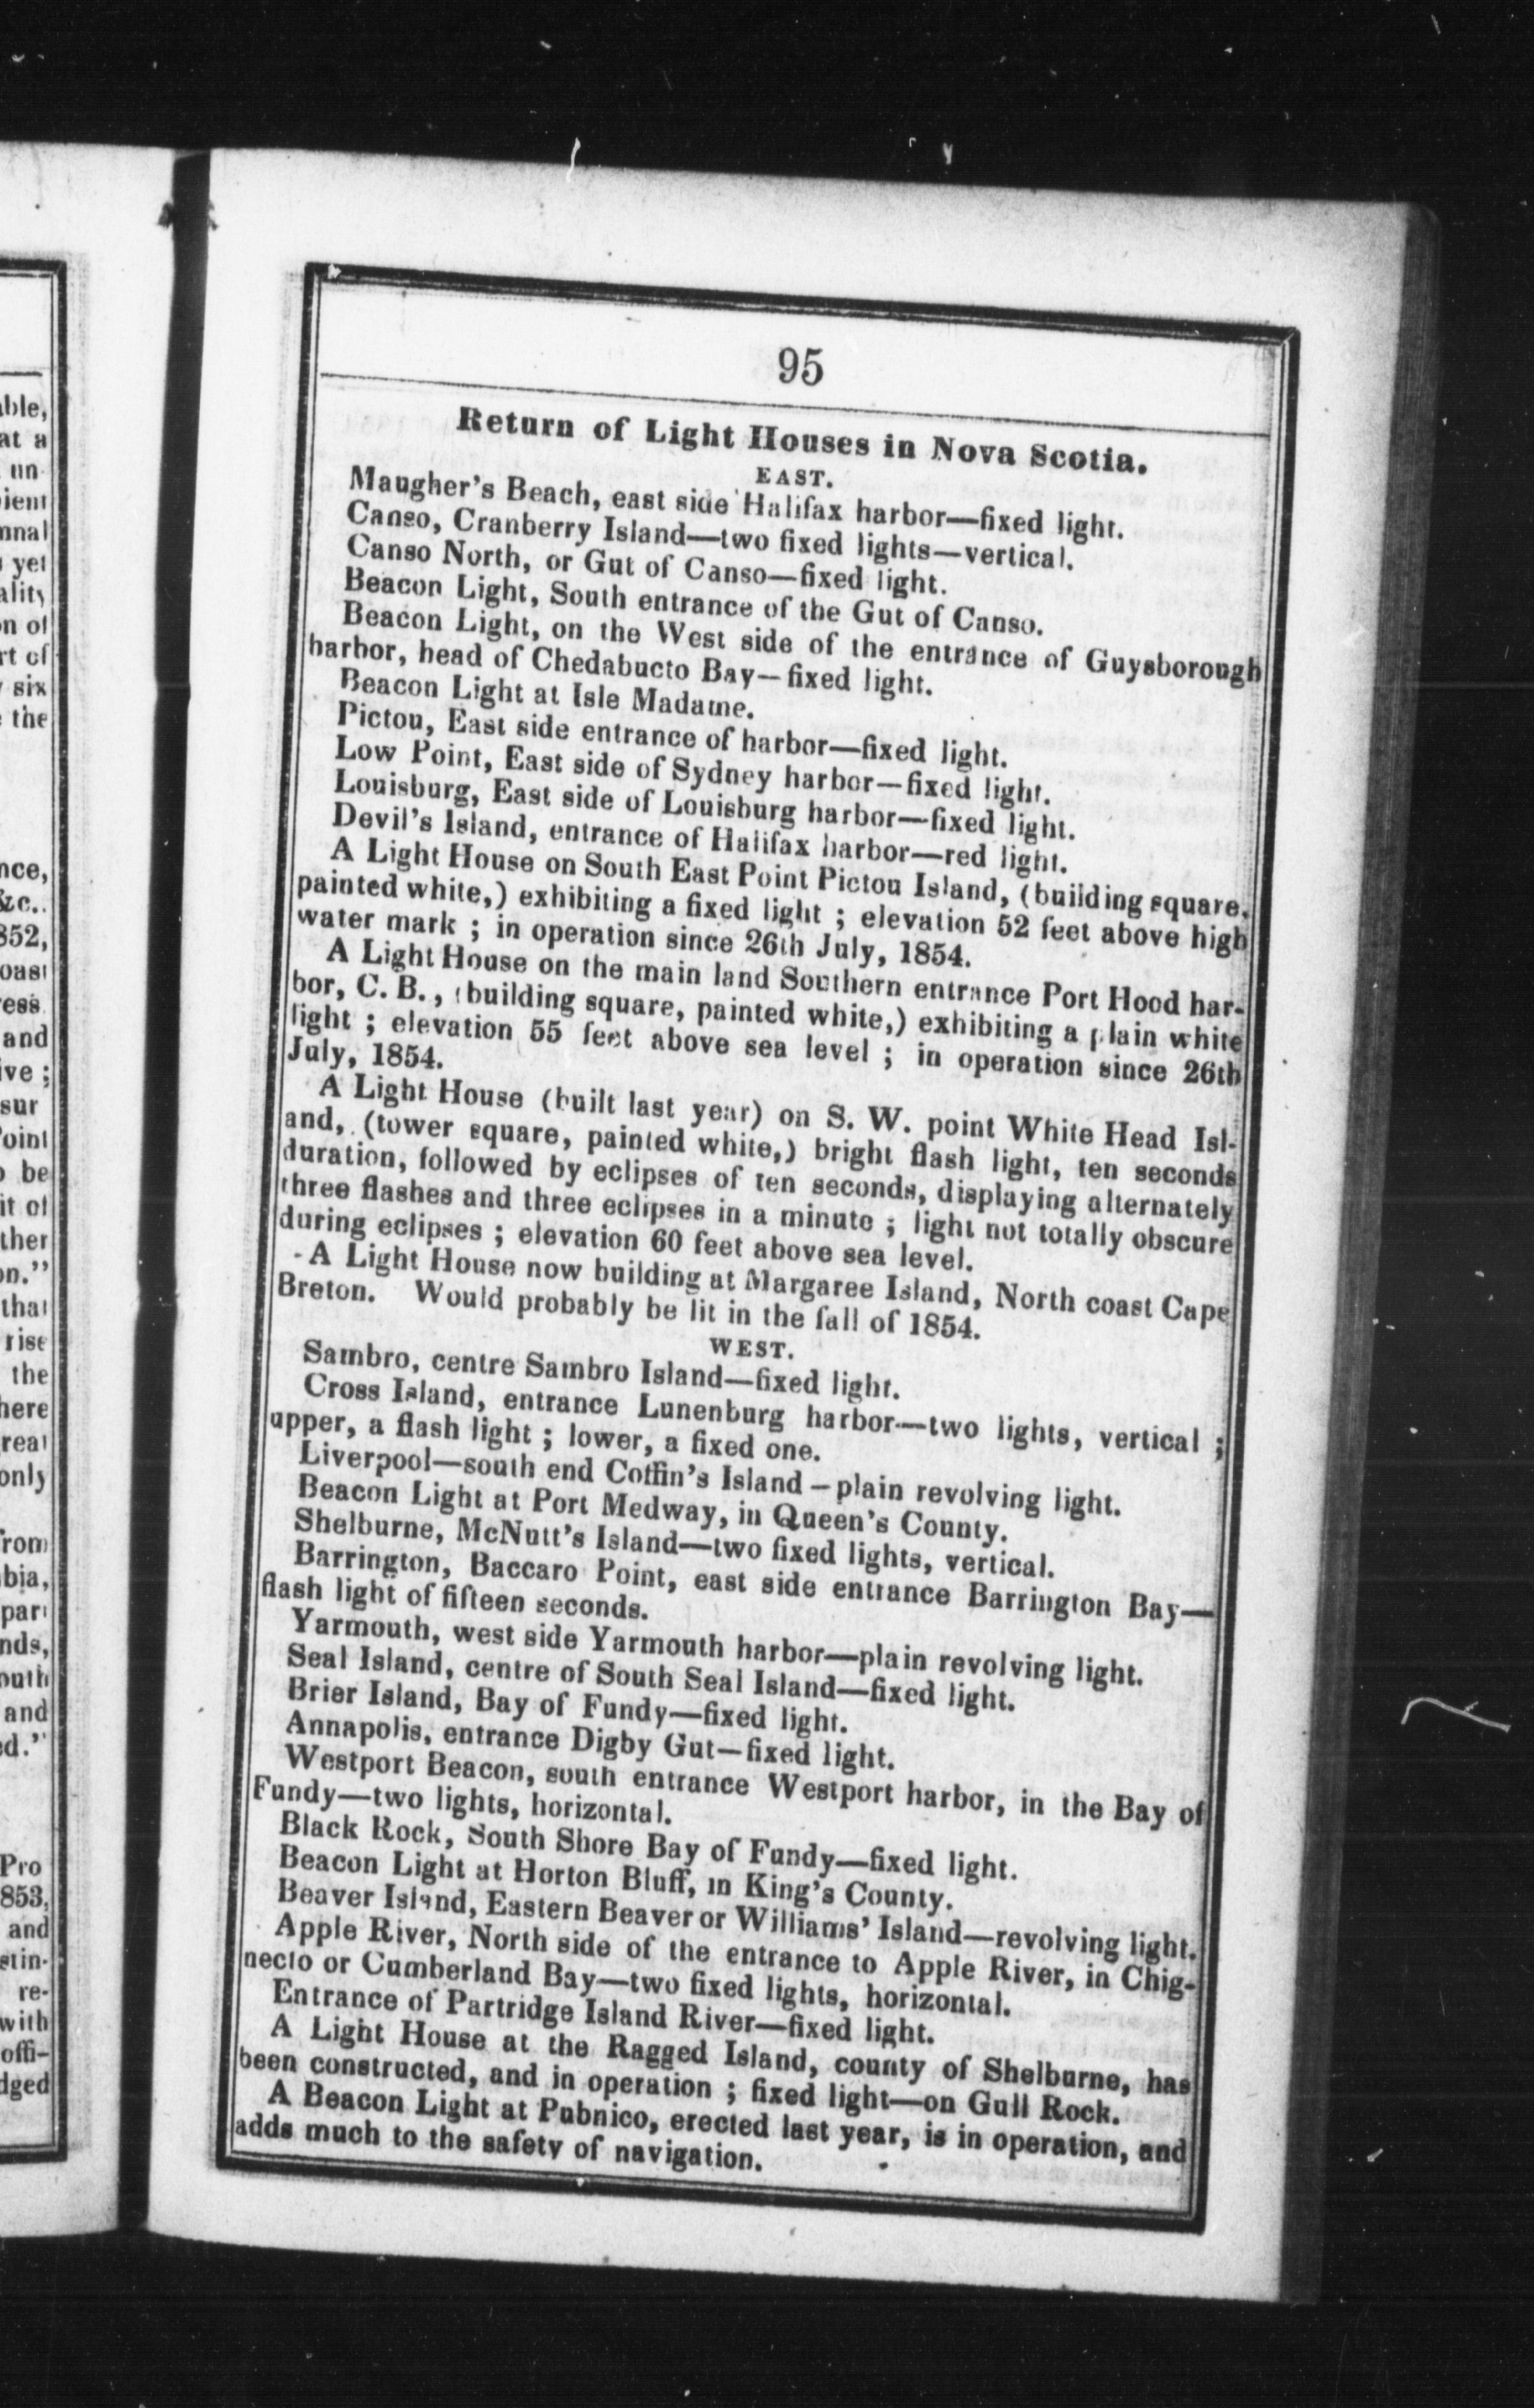 95
Return of Light Houses in Nova Scotia.
EAST.
Maugher's Beach, east side Halifax harbor—fixed light.
Canso, Cranberry Island—two fixed lights—vertical.
Canso North, or Gut of Canso—fixed light.
Beacon Light, South entrance of the Gut of Canso.
Beacon Light, on the West side of the entrance of Guysborough
harbor, head of Chedabucto Bay—fixed light.
Beacon Light at Isle Madame.
Pictou, East side entrance of harbor—fixed light.
Low Point, East side of Sydney harbor—fixed light.
Louisburg, East side of Louisburg harbor—fixed light.
Devil's Island, entrance of Halifax harbor—red light.
A Light House on South East Point Pictou Island, (building square,
painted white,) exhibiting a fixed light ; elevation 52 feet above high
water mark ; in operation since 26th July, 1854.
A Light House on the main land Southern entrance Port Hood har-
bor, C. B., (building square, painted white,) exhibiting a plain white
light ; elevation 55 feet above sea level ; in operation since 26th
July, 1854.
A Light House (built last year) on S. W. point White Head Isl-
and, (tower square, painted white,) bright flash light, ten seconds
duration, followed by eclipses of ten seconds, displaying alternately
three flashes and three eclipses in a minute ; light not totally obscure
during eclipses ; elevation 60 feet above sea level.
A Light House now building at Margaree Island, North coast Cape
Breton. Would probably be lit in the fall of 1854.
WEST.
Sambro, centre Sambro Island—fixed light.
Cross Island, entrance Lunenburg harbor—two lights, vertical ;
upper, a flash light ; lower, a fixed one.
Liverpool—south end Coffin's Island—plain revolving light.
Beacon Light at Port Medway, in Queen's County.
Shelburne, McNutt's Island—two fixed lights, vertical.
Barrington, Baccaro Point, east side entrance Barrington Bay—
flash light of fifteen seconds.
Yarmouth, west side Yarmouth harbor—plain revolving light.
Seal Island, centre of South Seal Island—fixed light.
Brier Island, Bay of Fundy—fixed light.
Annapolis, entrance Digby Gut—fixed light.
Westport Beacon, south entrance Westport harbor, in the Bay of
Fundy—two lights, horizontal.
Black Rock, South Shore Bay of Fundy—fixed light.
Beacon Light at Horton Bluff, in King's County.
Beaver Island, Eastern Beaver or Williams' Island—revolving light.
Apple River, North side of the entrance to Apple River, in Chig-
necto or Cumberland Bay—two fixed lights, horizontal.
Entrance of Partridge Island River—fixed light.
A Light House at the Ragged Island, county of Shelburne, has
been constructed, and in operation ; fixed light—on Gull Rock.
A Beacon Light at Pubnico, erected last year, is in operation, and
adds much to the safety of navigation.